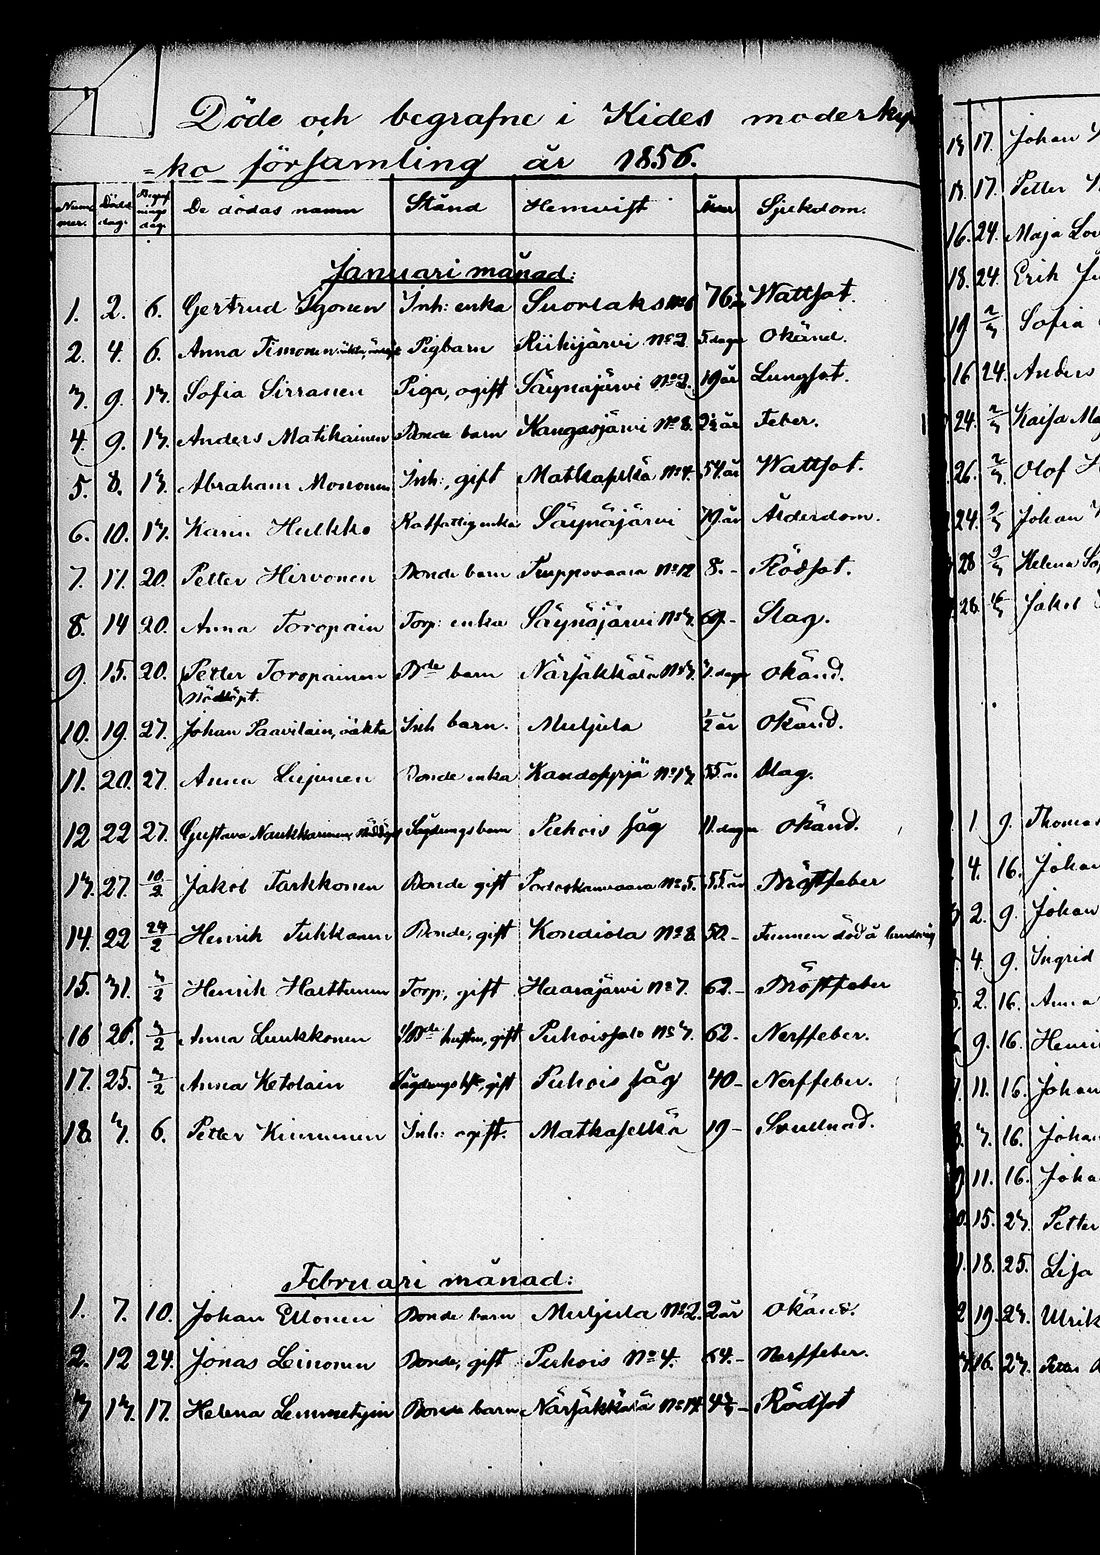 Döde och begrafne i Kides moderkyr
=ka församling år 1856.
Num mer. Död dag. Begraf nings dag. De dödas namn Stånd Hemvist Ålder Sjukdom.
Januari månad:
1. 2. 6. Gertrud Ignonen Inh: enka Suorlaks 76 Wattsot.
2. 4. 6. Anna Timonen Pigbarn Riihijärvi No 2 5 dagar Okänd.
3. 9. 13. Sofia Sirranen Piga, ogift Säynäjärvi No 2. 19 år Lungsot.
4. 9. 13. Anders Matikainen Bonde barn Kangasjärvi No 8. 2½ år Feber.
5. 8. 13. Abraham Mononen Inh:, gift Matkaselkä No 4. 54 år Wattsot.
6. 10. 13. Karin Hulkko Rotfattig enka Säynäjärvi 79 år Ålderdom.
7. 11. 20. Petter Hirvonen Bonde barn Truppovaara No 12 8.- Rödsot.
8. 14 20. Anna Toropain Torp: enka Säynäjärvi No 3. 69.- Slag.
9. 15. 20. Petter Toropainen Bde barn Närsäkkälä 3. dagar Okänd.
Nöddöpt.
10. 19. 27. Johan Paavilain, oäkta Inh barn. Muljula ½ år Okänd.
11. 20. 27. Anna Leijnen Bonde enka Kandosyrjä No 13. 55. år Slag.
12 22 27. Gustava Naukkarinen Sågdrengs barn Puhois såg 11. dagar Okänd.
13. 27. 10/2 Jakob Tarkkonen Bonde gift Potoskanvaara No 5. 55. år Bröstfeber
14. 22 24/2 Henrik Tukkanen Bonde, gift Kondiola No 8 50.- Funnen död å landsväg
15. 31. 3/2 Henrik Harttunen Torp., gift Haarajärvi No 7. 62.- Bröstfeber
16 26. 3/2 Anna Luukkonen Bde hustru, gift Puhoissalo No 3. 62.- Nerffeber.
17. 25. 3/2 Anna Ketolain Sågdrengs h, gift Puhois såg 40- Nerffeber.
18. 3. 6. Petter Kinnunen Inh: ogift. Matkaselkä 19- Svullnad.
Februari månad:
1. 7. 10. Johan Ellonen Bonde barn Muljula No 2. 2 år Okänd.
2. 12 24. Jonas Leinonen Bonde, gift Puhois No 4. 64.- Nerffeber.
3 13. 17. Helena Lemmetyin Bonde barn Närsäkkälä No 14 4¾- Rödsot
13. 17. Johan
13. 17. Petter
16. 24. Maja Lov
18. 24. Erik Ju
19 2/3 Sofia
16 24. Anders
24. 2/3 Kaisa Ma
26. 2/3 Olof H
24. 2/3 Johan
28 2/3 Helena So
28. Jakob
1. 9. Thomas
4. 16. Johan
2. 9. Johan
4. 9. Ingrid
2. 16. Anna
9. 16. Henri
11. 16. Johan
3. 16. Johan
11. 16. Joha
15. 23. Petter
18. 25. Lisa
19. 23. Ulrik
16. 23. Petter